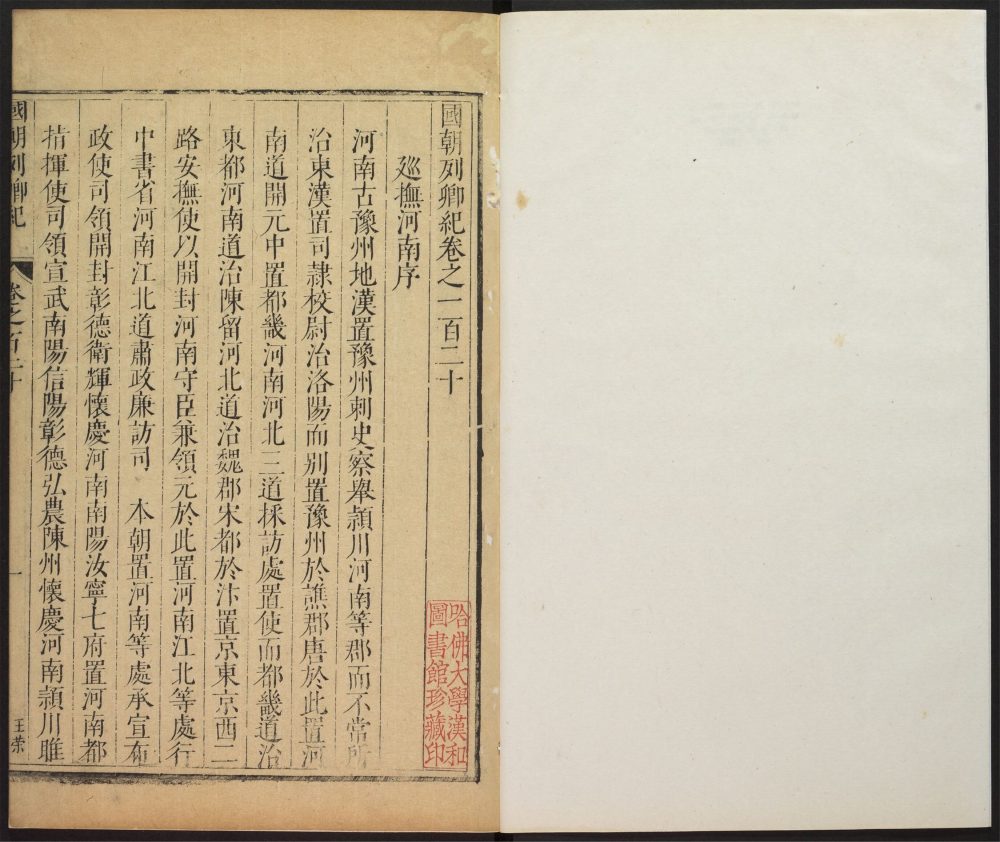 國朝列卿紀卷之一百二十
廵撫河南序
河南古豫州地漢置豫州刺史察舉頴川河南等郡而不常所
治東漢置司隷校尉治洛陽而别置豫州於譙郡唐於此置河
南道開元中置都畿河南河北三道採訪處置使而都畿道治
東都河南道治陳留河北道治魏郡宋都於汴置京東京西二
路安撫使以開封河南守臣兼領元於此置河南江北等處行
中書省河南江北道肅政廉訪司　本朝置河南等處承宣布
政使司領開封彰德衛輝懷慶河南南陽汝寧七府置河南都
指揮使司領宣武南陽信陽彰德弘農陳州懷慶河南頴川睢
國朝列卿紀
卷之百二十
一
王荣
哈佛大學漢和
圖書館珍藏印